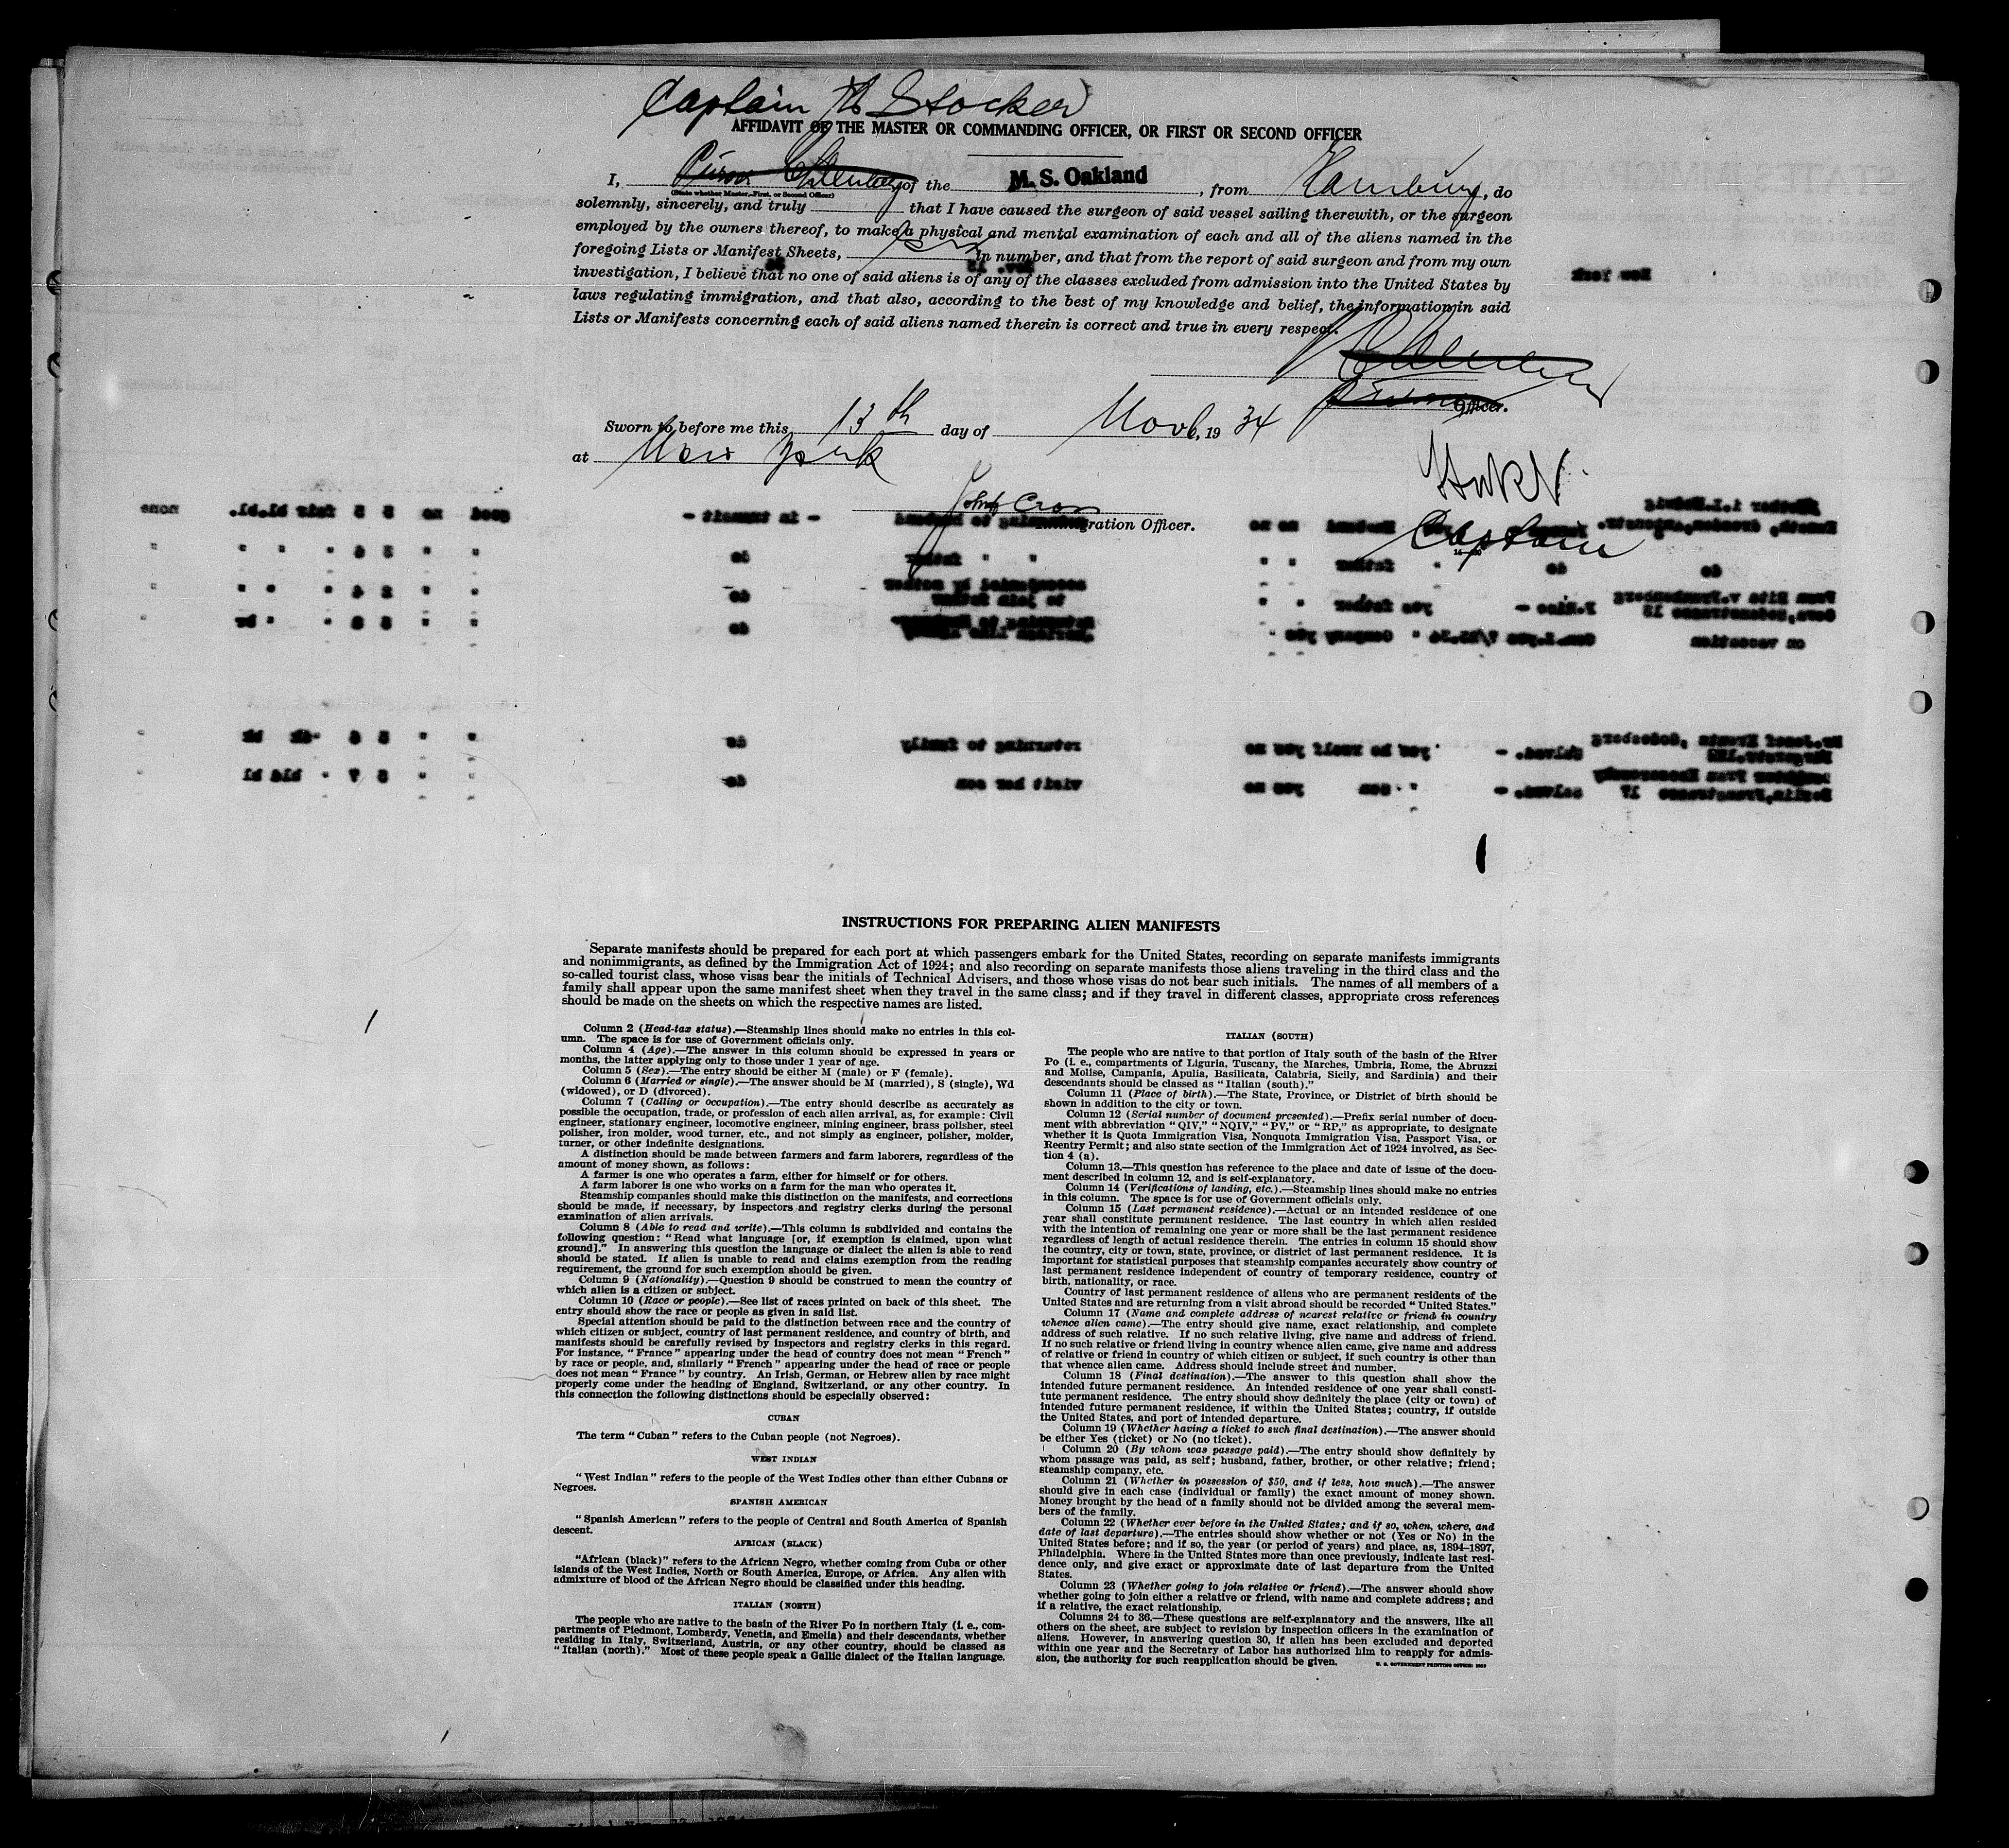 Captain Stocker
AFFIDAVIT OF THE MASTER OR COMMANDING OFFICER, OR FIRST OR SECOND OFFICER
I, of the M. S. Oakland, from Hamburg, do
(State whether Master, First, or Second Officer)
solemnly, sincerely, and truly that I have caused the surgeon of said vessel sailing therewith, or the surgeon
employed by the owners thereof, to make a physical and mental examination of each and all of the aliens named in the
foregoing Lists or Manifest Sheets, in number, and that from the report of said surgeon and from my own
investigation, I believe that no one of said aliens is of any of the classes excluded from admission into the United States by
laws regulating immigration, and that also, according to the best of my knowledge and belief, the information in said
Lists or Manifests concerning each of said aliens named therein is correct and true in every respect.
Officer.
Sworn to before me this 13th day of Novb, 19 34
at New York
John Cron
Immigration Officer.
Captain
INSTRUCTIONS FOR PREPARING ALIEN MANIFESTS
Separate manifests should be prepared for each port at which passengers embark for the United States, recording on separate manifests immigrants
and nonimmigrants, as defined by the Immigration Act of 1924; and also recording on separate manifests those aliens traveling in the third class and the
so-called tourist class, whose visas bear the initials of Technical Advisers, and those whose visas do not bear such initials. The names of all members of a
family shall appear upon the same manifest sheet when they travel in the same class; and if they travel in different classes, appropriate cross references
should be made on the sheets on which the respective names are listed.
Column 2 (Head-tax status).—Steamship lines should make no entries in this col-
umn. The space is for use of Government officials only.
Column 4 (Age).—The answer in this column should be expressed in years or
months, the latter applying only to those under 1 year of age.
Column 5 (Sex).—The entry should be either M (male) or F (female).
Column 6 (Married or single).—The answer should be M (married), S (single), Wd
(widowed), or D (divorced).
Column 7 (Calling or occupation).—The entry should describe as accurately as
possible the occupation, trade, or profession of each alien arrival, as, for example: Civil
engineer, stationary engineer, locomotive engineer, mining engineer, brass polisher, steel
polisher, iron molder, wood turner, etc., and not simply as engineer, polisher, molder,
turner, or other indefinite designations.
A distinction should be made between farmers and farm laborers, regardless of the
amount of money shown, as follows:
A farmer is one who operates a farm, either for himself or for others.
A farm laborer is one who works on a farm for the man who operates it.
Steamship companies should make this distinction on the manifests, and corrections
should be made, if necessary, by inspectors and registry clerks during the personal
examination of alien arrivals.
Column 8 (Able to read and write).—This column is subdivided and contains the
following question: "Read what language [or, if exemption is claimed, upon what
ground]." In answering this question the language or dialect the alien is able to read
should be stated. If alien is unable to read and claims exemption from the reading
requirement, the ground for such exemption should be given.
Column 9 (Nationality).—Question 9 should be construed to mean the country of
which alien is a citizen or subject.
Column 10 (Race or people).—See list of races printed on back of this sheet. The
entry should show the race or people as given in said list.
Special attention should be paid to the distinction between race and the country of
which citizen or subject, country of last permanent residence, and country of birth, and
manifests should be carefully revised by inspectors and registry clerks in this regard.
For instance, "France" appearing under the head of country does not mean "French"
by race or people, and, similarly "French" appearing under the head of race or people
does not mean "France" by country. An Irish, German, or Hebrew alien by race might
properly come under the heading of England, Switzerland, or any other country. In
this connection the following distinctions should be especially observed:
CUBAN
The term "Cuban" refers to the Cuban people (not Negroes).
WEST INDIAN
"West Indian" refers to the people of the West Indies other than either Cubans or
Negroes.
SPANISH AMERICAN
"Spanish American" refers to the people of Central and South America of Spanish
descent.
AFRICAN (BLACK)
"African (black)" refers to the African Negro, whether coming from Cuba or other
islands of the West Indies, North or South America, Europe, or Africa. Any alien with
admixture of blood of the African Negro should be classified under this heading.
ITALIAN (NORTH)
The people who are native to the basin of the River Po in northern Italy (i. e., com-
partments of Piedmont, Lombardy, Venetia, and Emelia) and their descendants, whether
residing in Italy, Switzerland, Austria, or any other country, should be classed as
"Italian (north)." Most of these people speak a Gallic dialect of the Italian language.
ITALIAN (SOUTH)
The people who are native to that portion of Italy south of the basin of the River
Po (i. e., compartments of Liguria, Tuscany, the Marches, Umbria, Rome, the Abruzzi
and Molise, Campania, Apulia, Basilicata, Calabria, Sicily, and Sardinia) and their
descendants should be classed as "Italian (south)."
Column 11 (Place of birth).—The State, Province, or District of birth should be
shown in addition to the city or town.
Column 12 (Serial number of document presented).—Prefix serial number of docu-
ment with abbreviation "QIV," "NQIV," "PV," or "RP," as appropriate, to designate
whether it is Quota Immigration Visa, Nonquota Immigration Visa, Passport Visa, or
Reentry Permit; and also state section of the Immigration Act of 1924 involved, as Sec-
tion 4 (a).
Column 13.—This question has reference to the place and date of issue of the docu-
ment described in column 12, and is self-explanatory.
Column 14 (Verifications of landing, etc.).—Steamship lines should make no entries
in this column. The space is for use of Government officials only.
Column 15 (Last permanent residence).—Actual or an intended residence of one
year shall constitute permanent residence. The last country in which alien resided
with the intention of remaining one year or more shall be the last permanent residence
regardless of length of actual residence therein. The entries in column 15 should show
the country, city or town, state, province, or district of last permanent residence. It is
important for statistical purposes that steamship companies accurately show country of
last permanent residence independent of country of temporary residence, country of
birth, nationality, or race.
Country of last permanent residence of aliens who are permanent residents of the
United States and are returning from a visit abroad should be recorded "United States."
Column 17 (Name and complete address of nearest relative or friend in country
whence alien came).—The entry should give name, exact relationship, and complete
address of such relative. If no such relative living, give name and address of friend.
If no such relative or friend living in country whence alien came, give name and address
of relative or friend in country of which citizen or subject, if such country is other than
that whence alien came. Address should include street and number.
Column 18 (Final destination).—The answer to this question shall show the
intended future permanent residence. An intended residence of one year shall consti-
tute permanent residence. The entry should show definitely the place (city or town) of
intended future permanent residence, if within the United States; country, if outside
the United States, and port of intended departure.
Column 19 (Whether having a ticket to such final destination).—The answer should
be either Yes (ticket) or No (no ticket).
Column 20 (By whom was passage paid).—The entry should show definitely by
whom passage was paid, as self; husband, father, brother, or other relative; friend;
steamship company, etc.
Column 21 (Whether in possession of $50, and if less, how much).—The answer
should give in each case (individual or family) the exact amount of money shown.
Money brought by the head of a family should not be divided among the several mem-
bers of the family.
Column 22 (Whether ever before in the United States; and if so, when, where, and
date of last departure).—The entries should show whether or not (Yes or No) in the
United States before; and if so, the year (or period of years) and place, as, 1894–1897,
Philadelphia. Where in the United States more than once previously, indicate last resi-
dence only, and give exact or approximate date of last departure from the United
States.
Column 23 (Whether going to join relative or friend).—The answer should show
whether going to join either a relative or friend, with name and complete address; and
if a relative, the exact relationship.
Columns 24 to 36.—These questions are self-explanatory and the answers, like all
others on the sheet, are subject to revision by inspection officers in the examination of
aliens. However, in answering question 30, if alien has been excluded and deported
within one year and the Secretary of Labor has authorized him to reapply for admis-
sion, the authority for such reapplication should be given.